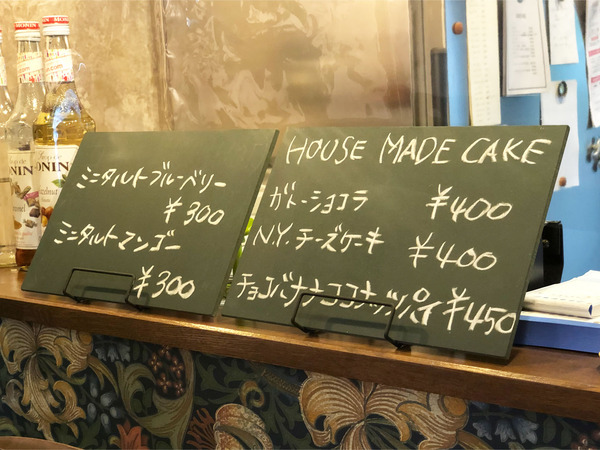 ミニタルトブルーベリー
¥300
ミニタルトマンゴー
¥300
HOUSE MADE CAKE
ガトーショコラ ¥400
N.Y.チーズケーキ ¥400
チョコバナナココナッツパイ ¥450
MONIN